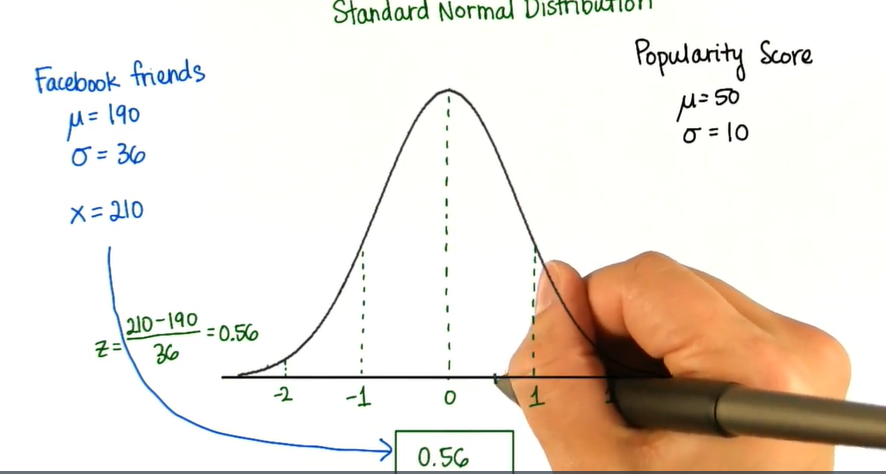 Standard Normal Distribution
Facebook friends
μ = 190
σ = 36
x = 210
z = 210-190 / 36 = 0.56
Popularity Score
μ = 50
σ = 10
-2 -1 0 1
0.56